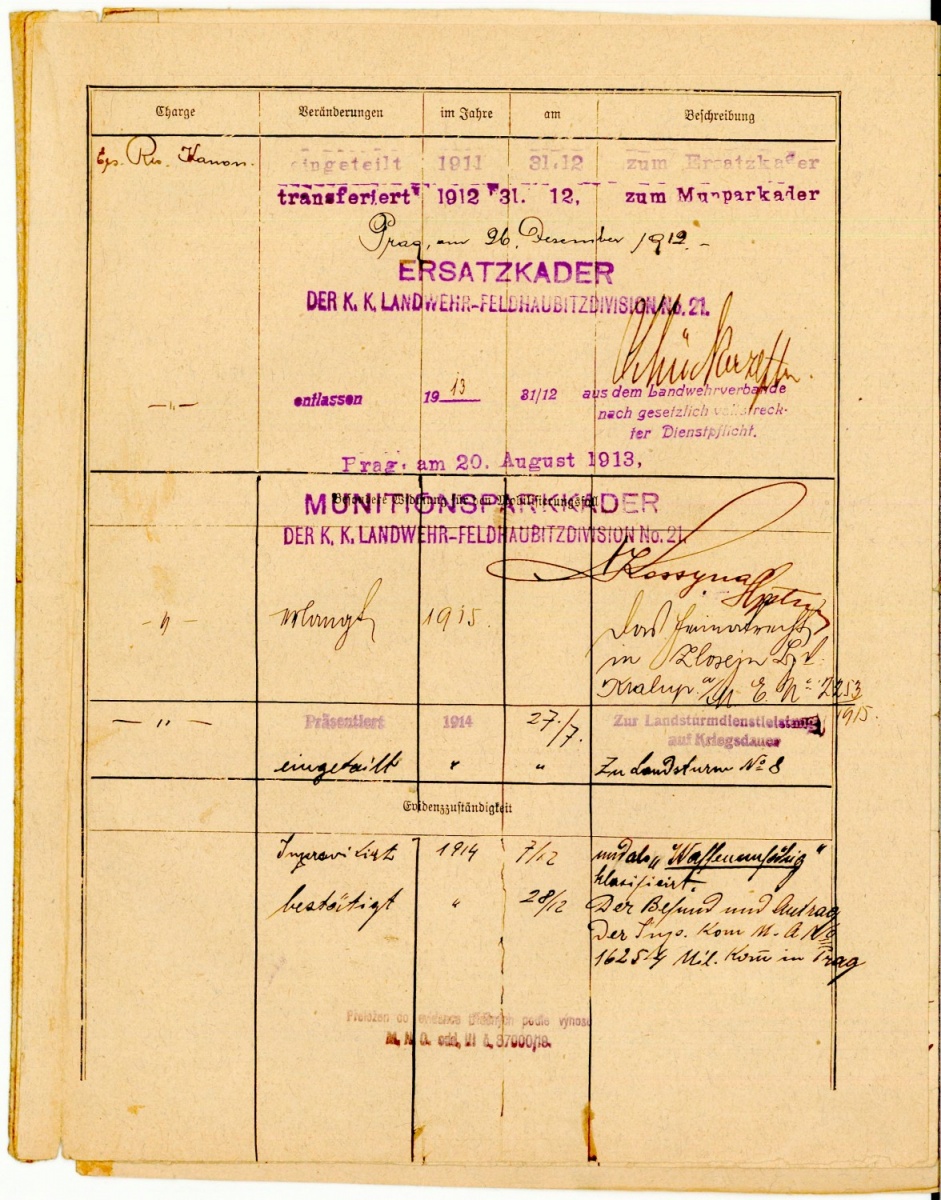 Charge Veränderungen im Jahre am Beschreibung
Ers. Res. Kanon. eingeteilt 1911 31.12 zum Ersatzkader
transferiert 1912 31. 12, zum Munparkader
Prag, am 26. Dezember 1912.-
ERSATZKADER
DER K. K. LANDWEHR-FELDHAUBITZDIVISION No. 21.
-"- entlassen 1913 31/12 aus dem Landwehrverbande
nach gesetzlich vollstreck-
ter Dienstpflicht.
Prag, am 20. August 1913,
Besondere Widmung für den Mobilisierungsfall
MUNITIONSPARKKADER
DER K. K. LANDWEHR-FELDHAUBITZDIVISION No. 21.
Kossyna
Hptm
-"- erlangt 1915. das Heimatrecht
in Zlosejn
Kralup a/M. E. No 2253
1915.
-"- Präsentiert 1914 27./7. Zur Landsturmdienstleistung
auf Kriegsdauer
eingeteilt " " Zu Landsturm No 8
Evidenzzuständigkeit
1914 7/12 und als „Waffenunfähig"
klasifiziert.
bestätigt " 28/12 Der Befund und Antrag
Der Sup. Kom M. A. No
16254 Mil. Kom in Prag
Přeložen do evidence podle výnosu
M. N. O. odd. III č. 37000/19.